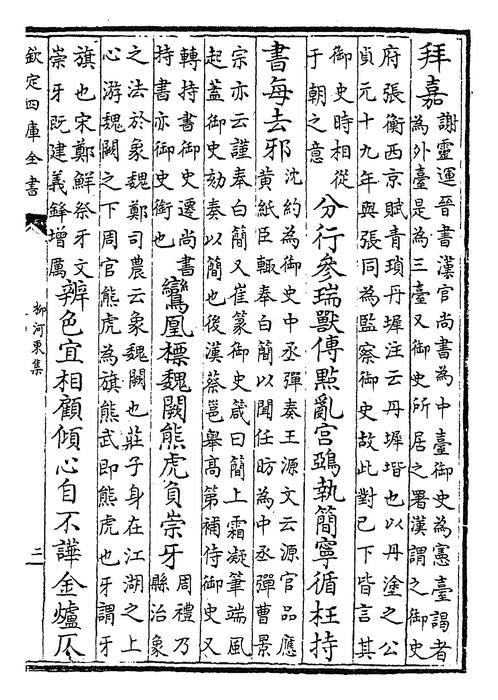 拜嘉
謝靈運晉書漢官尚書為中臺御史為憲臺謁者
為外臺是為三臺又御史所居之署漢謂之御史
府張衡西京賦青瑣丹墀注云丹墀堦也以丹塗之公
貞元十九年與張同為監察御史故此對已下皆言其
御史時相從
于朝之意
分行參瑞獸傳點亂宮鵶執簡寧循枉持
書每去邪
沈約為御史中丞彈奏王源文云源官品應
黃紙臣輒奉白簡以聞任昉為中丞彈曹景
宗亦云謹奉白簡又崔篆御史箴曰簡上霜凝筆端風
起蓋御史劾奏以簡也後漢蔡邕舉高第補侍御史又
轉持書御史遷尚書
持書亦御史銜也
鸞凰標魏闕熊虎負崇牙
周禮乃
縣治象
之法於象魏鄭司農云象魏闕也莊子身在江湖之上
心游魏闕之下周官熊虎為旗熊武即熊虎也牙謂牙
旗也宋鄭鮮祭牙文
崇牙既建義鋒增厲
辨色宜相顧傾心自不譁金爐仄
欽定四庫全書
柳河東集
二